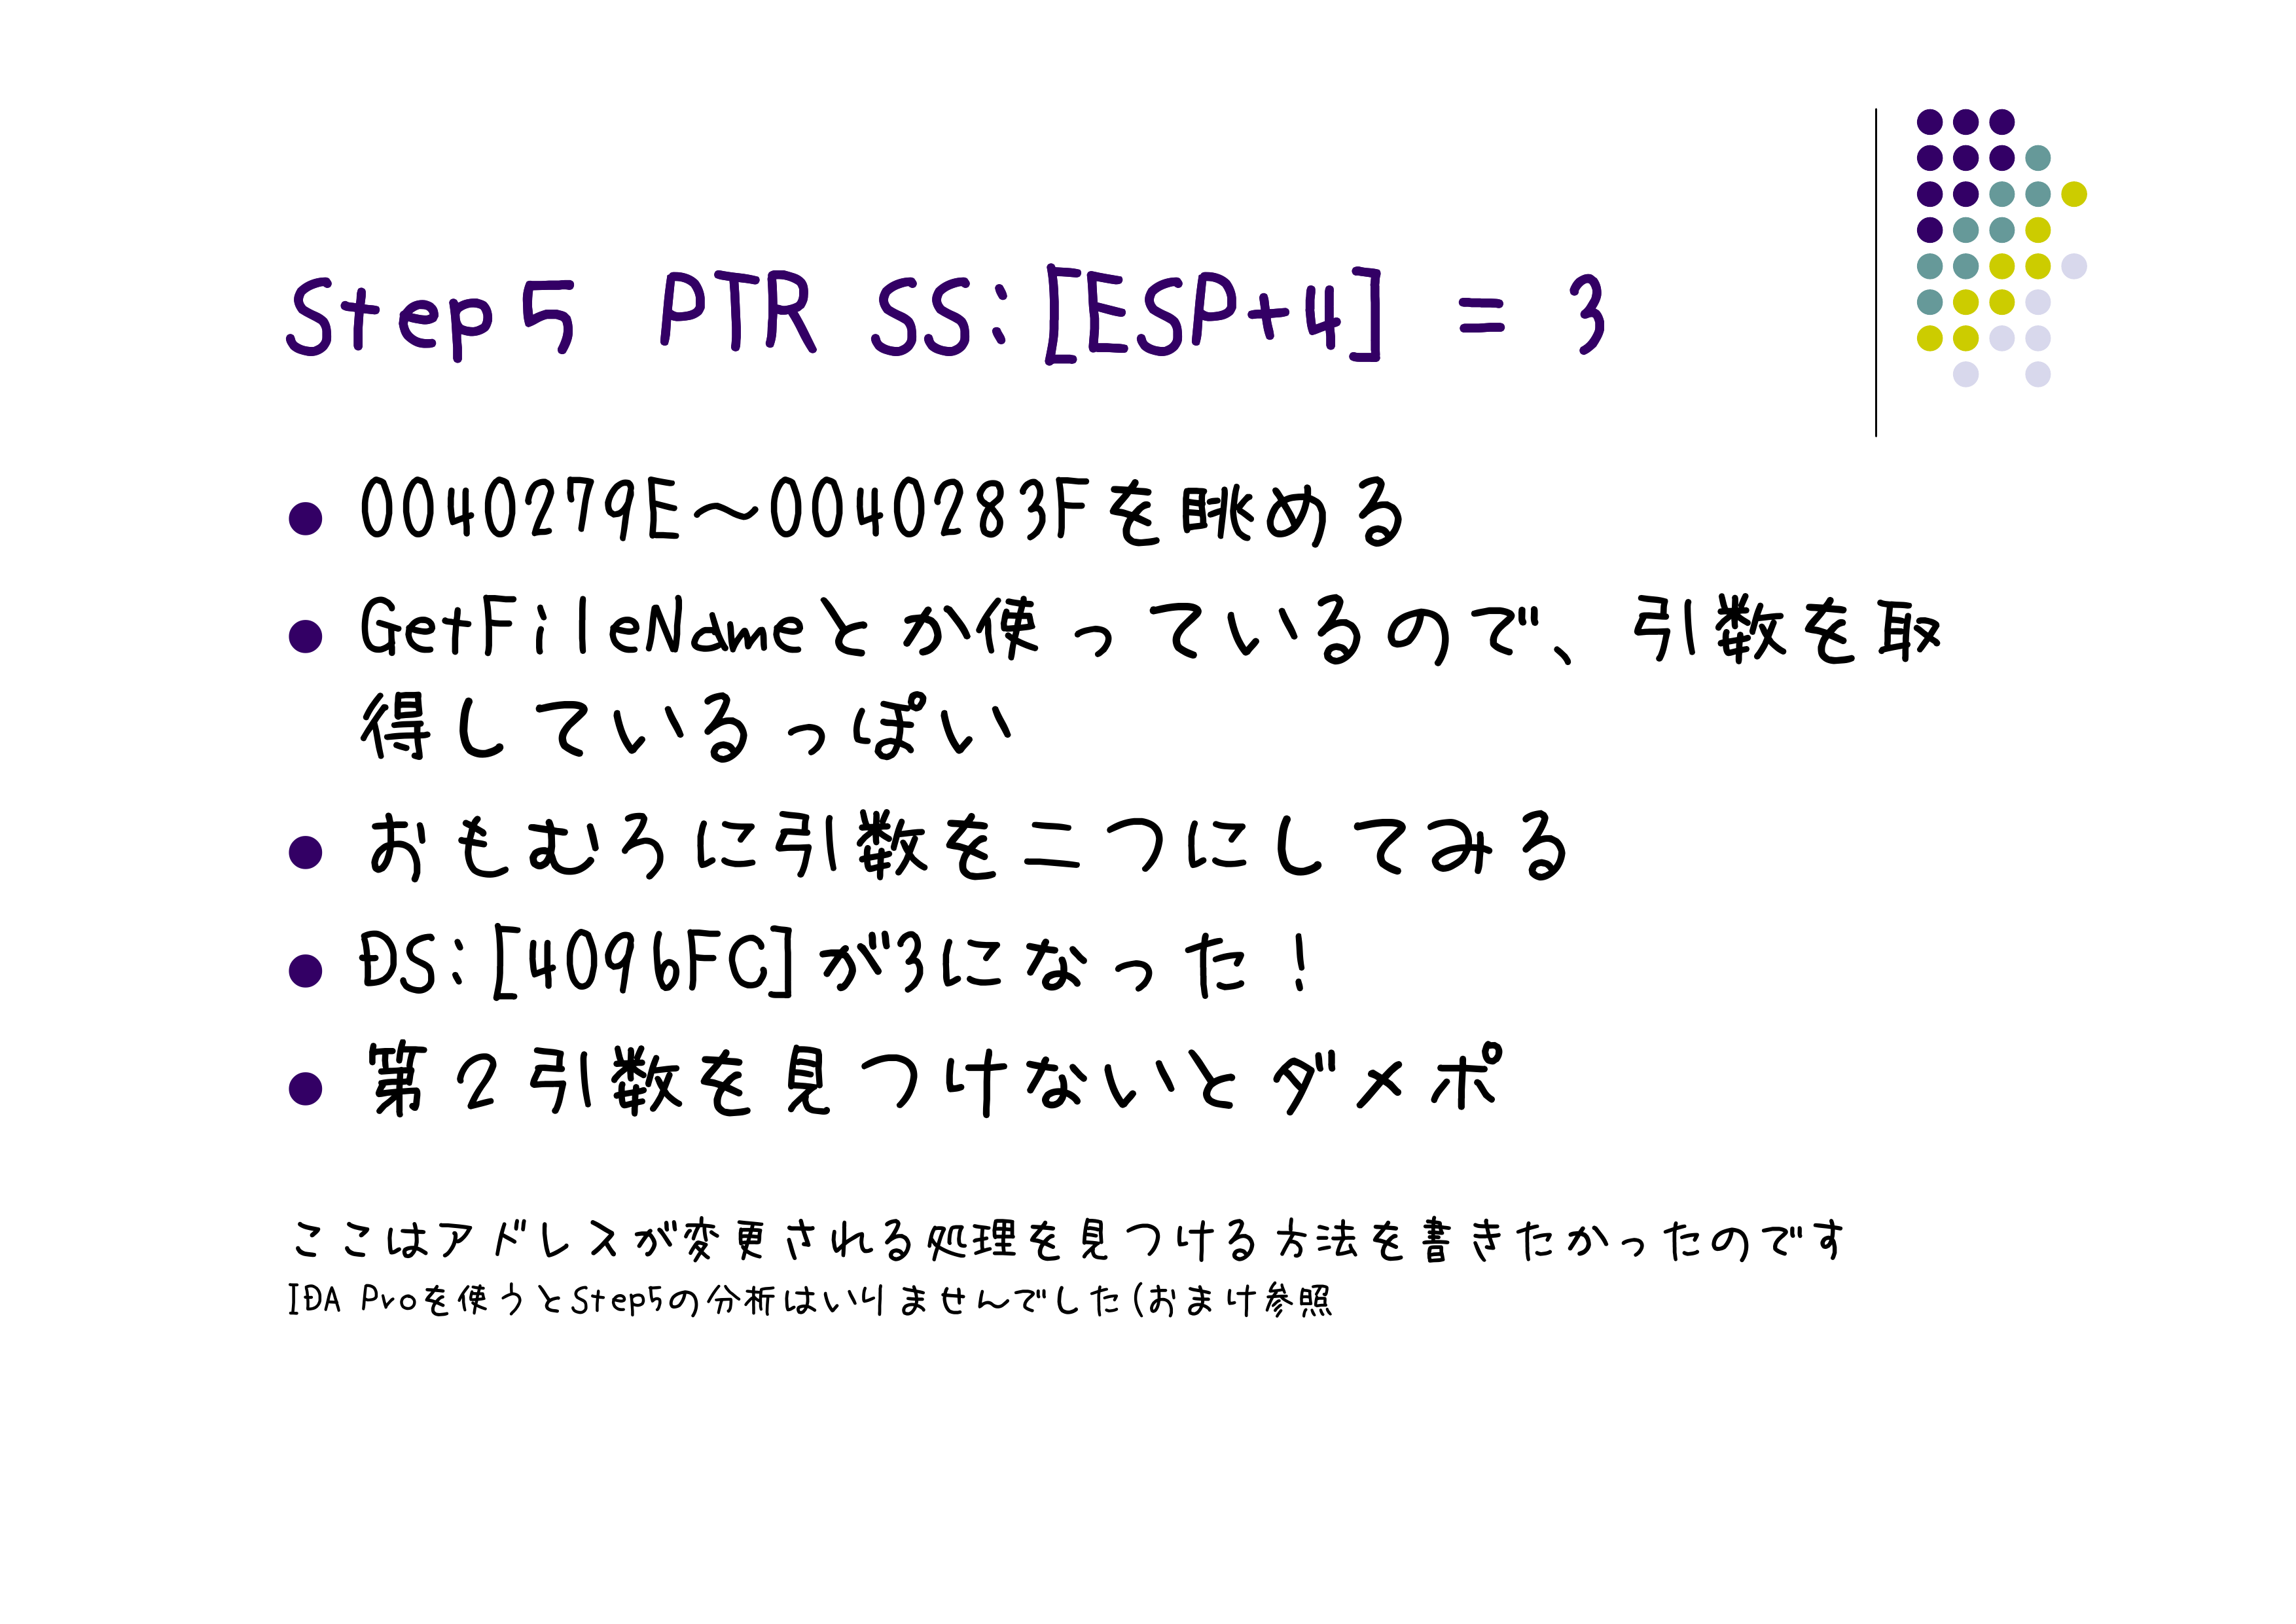 Step5 PTR SS:[ESP+4] = 3
● 0040279E～0040283Fを眺める
● GetFileNameとか使っているので、引数を取
得しているっぽい
● おもむろに引数を二つにしてみる
● DS:[4096FC]が3になった！
● 第２引数を見つけないとダメポ
ここはアドレスが変更される処理を見つける方法を書きたかったのです
IDA Proを使うとStep5の分析はいりませんでした(おまけ参照